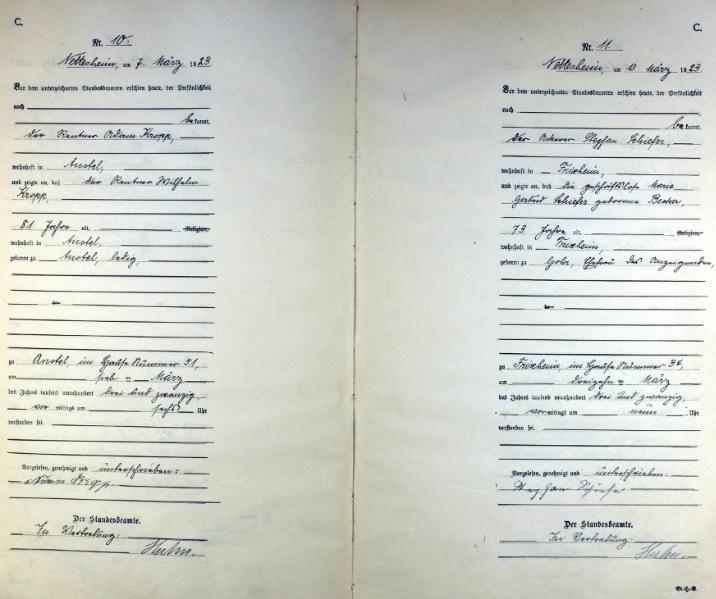 C.
Nr. 10.
Nettesheim, am 7. März 1923
Vor dem unterzeichneten Standesbeamten erschien heute, der Persönlichkeit
nach
be kannt,
der Rentner Adam Kropp,
wohnhaft in Anstel,
und zeigte an, daß der Rentner Wilhelm
Kropp,
81 Jahre alt, Religion,
wohnhaft in Anstel,
geboren zu Anstel, ledig,
zu Anstel, im Hause Nummer 51,
am März
des Jahres tausend neunhundert drei und zwanzig,
vor mittags um sechs Uhr
verstorben sei.
Vorgelesen, genehmigt und unterschrieben:
Adam Kropp.
Der Standesbeamte.
In Vertretung:
C.
Nr. 11
Nettesheim, am März 1923
Vor dem unterzeichneten Standesbeamten erschien heute, der Persönlichkeit
nach
be kannt,
der Ackerer Stephan Schiefer,
wohnhaft in Frixheim,
und zeigte an, daß die geschäftslose Maria
Gertrud Schiefer geborene Becker,
73 Jahre alt, Religion,
wohnhaft in Frixheim,
geboren zu Gohr, Ehefrau des Anzeigenden,
zu Frixheim, im Hause Nummer 34,
am dreizehn = März
des Jahres tausend neunhundert drei und zwanzig,
vor mittags um neun Uhr
verstorben sei.
Vorgelesen, genehmigt und unterschrieben:
Stephan Schiefer
Der Standesbeamte.
In Vertretung: